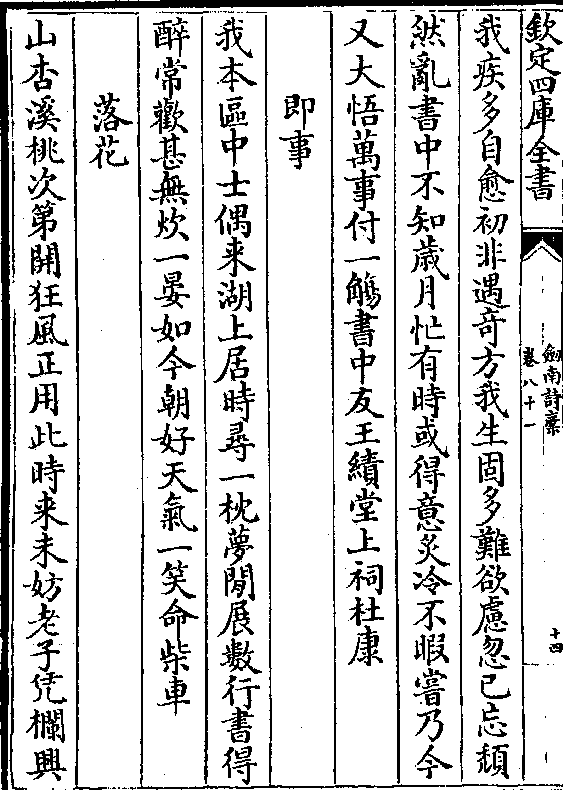 欽定四庫全書
劍南詩稾
卷八十一
十四
我疾多自愈初非遇竒方我生固多難欲慮忽已忘頽
然亂書中不知歲月忙有時或得意炙冷不暇嘗乃今
又大悟萬事付一觴書中友王績堂上祠杜康
即事
我本區中士偶来湖上居時尋一枕夢閒展數行書得
醉常歡甚無炊一晏如今朝好天氣一笑命柴車
落花
山杏溪桃次第開狂風正用此時来未妨老子凭欄興